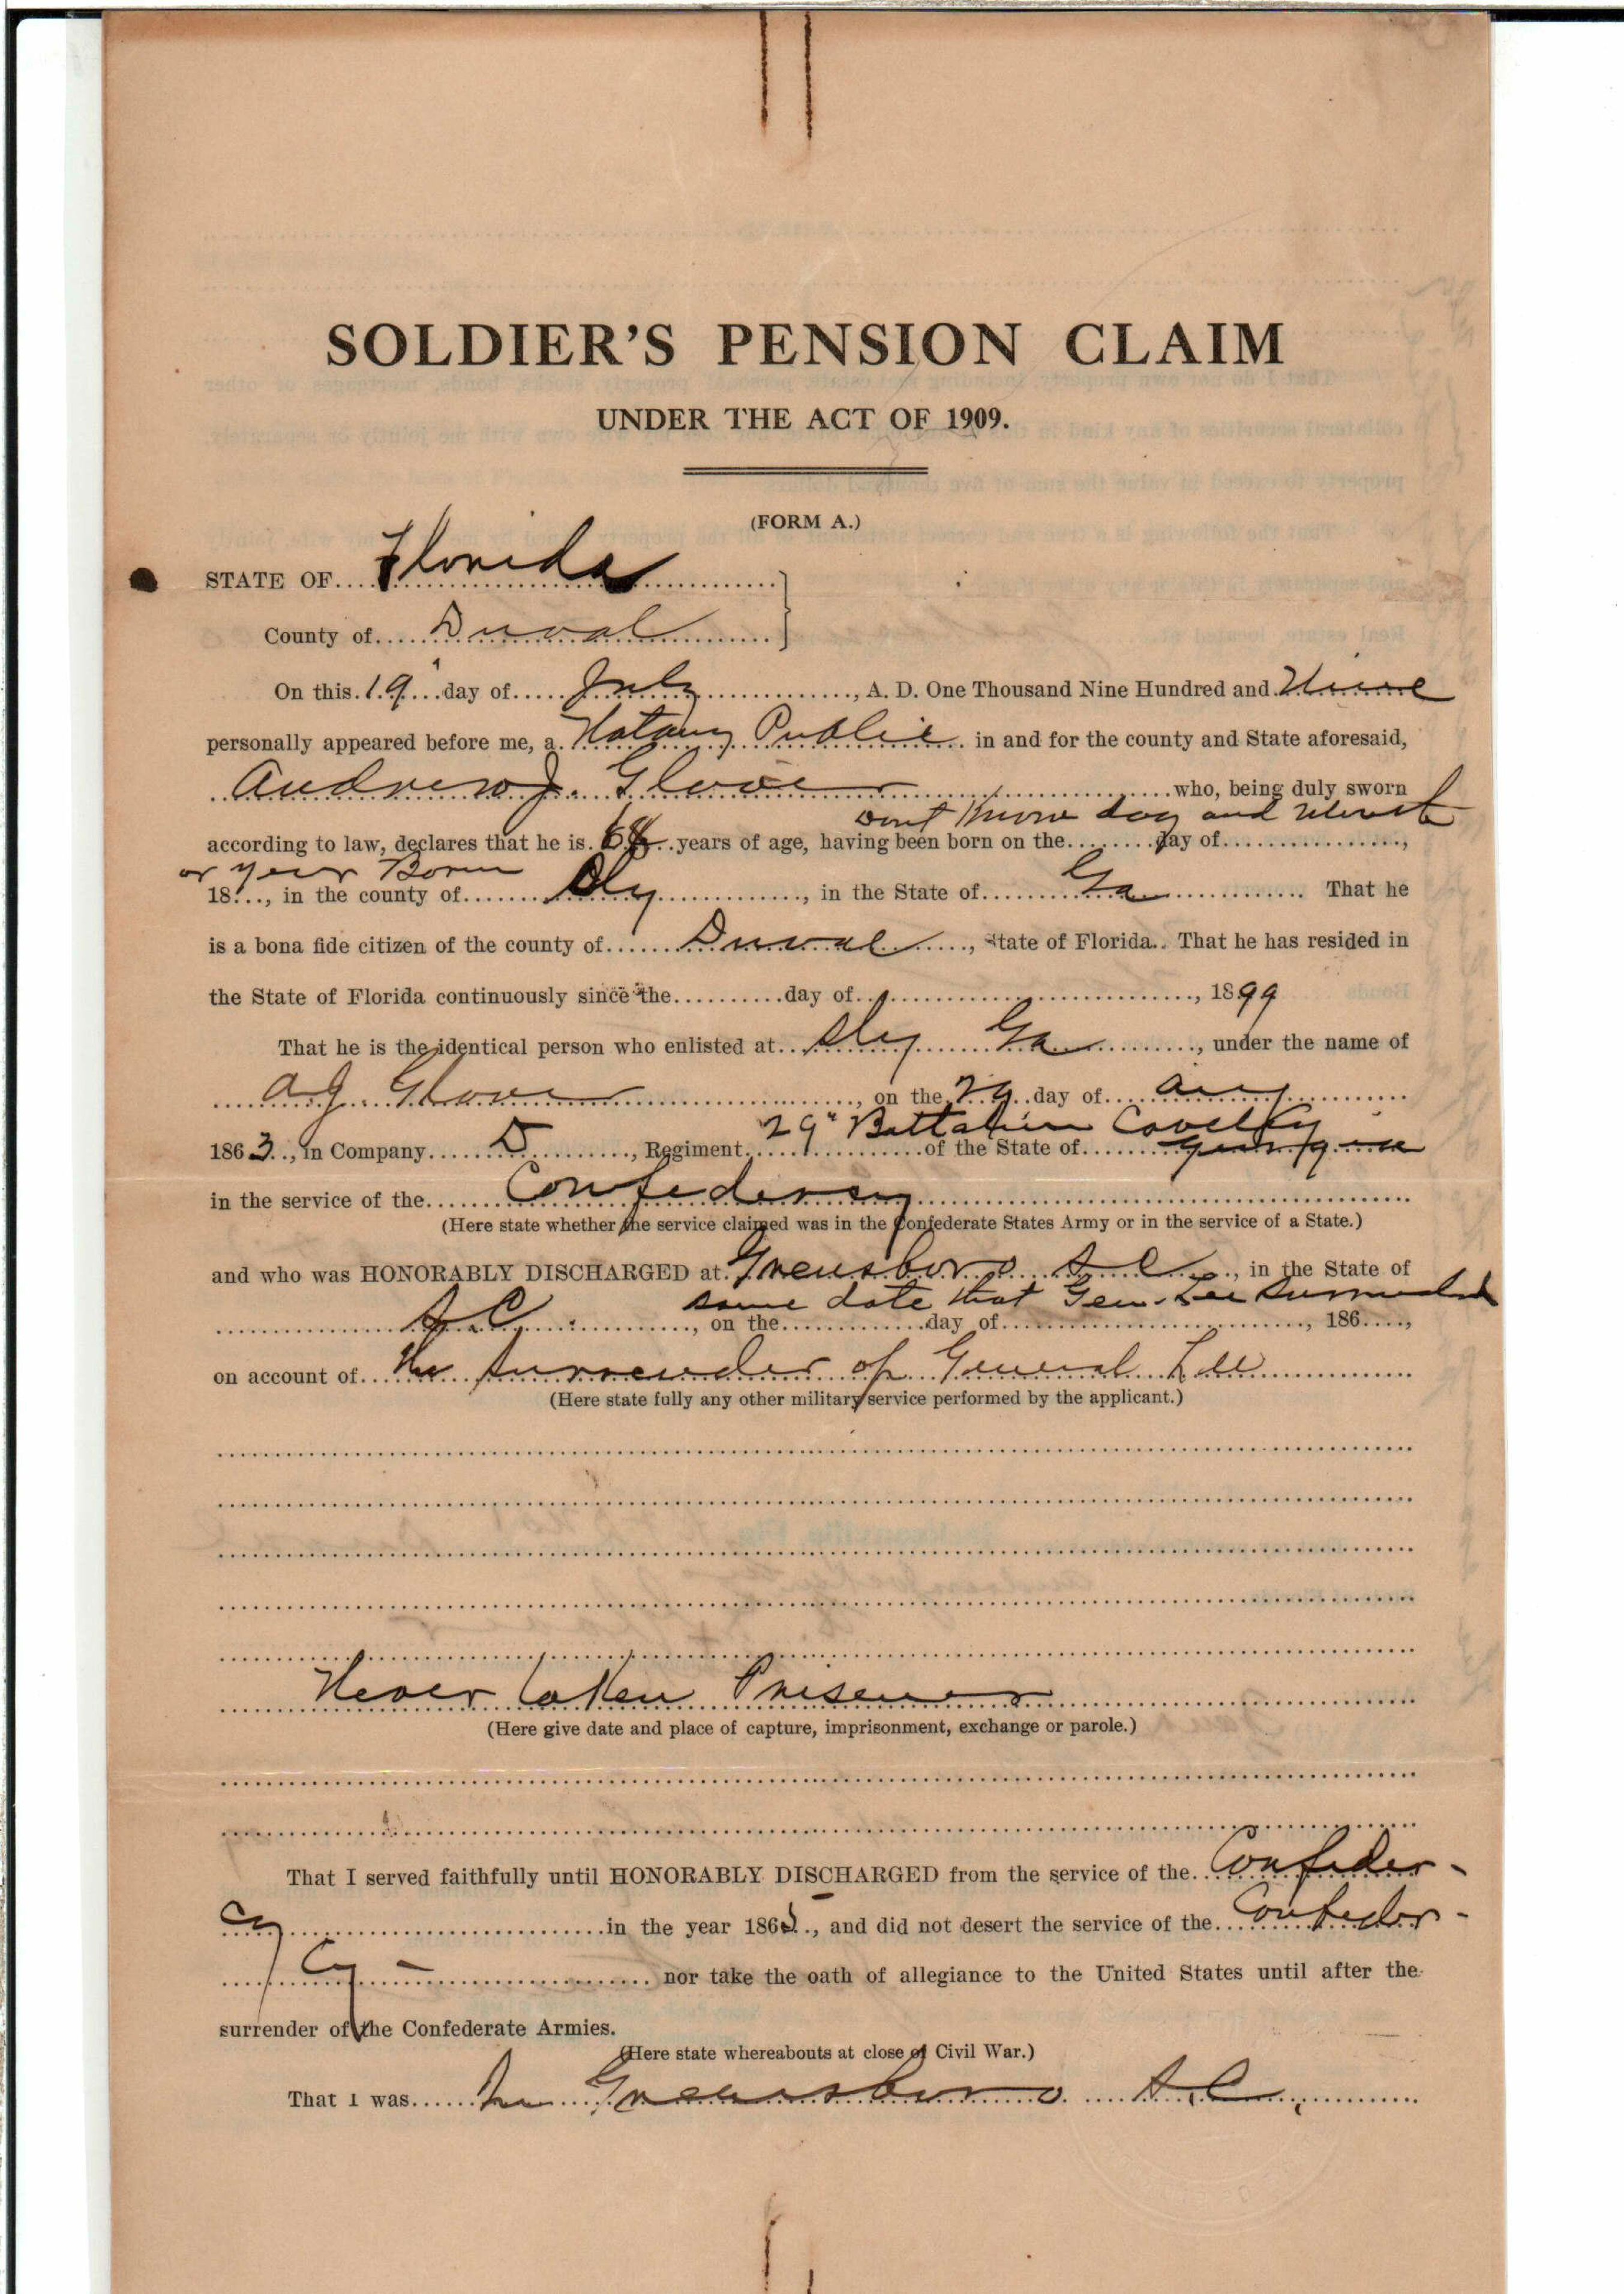 SOLDIER'S PENSION CLAIM
UNDER THE ACT OF 1909.
(FORM A.)
STATE OF Florida
County of Duval
On this 19 day of July, A. D. One Thousand Nine Hundred and Nine
personally appeared before me, a Notary Public in and for the county and State aforesaid,
Andrew J. Glover who, being duly sworn
dont know day and Month
according to law, declares that he is years of age, having been born on the day of,
or year Born
18, in the county of, in the State of Ga. That he
is a bona fide citizen of the county of Duval, State of Florida. That he has resided in
the State of Florida continuously since the day of, 1899
That he is the identical person who enlisted at Ga, under the name of
A J Glover, on the 29 day of Aug
29" Battalion Cavelry
1863, in Company D, Regiment of the State of Georgia
in the service of the Confedercy
(Here state whether the service claimed was in the Confederate States Army or in the service of a State.)
and who was HONORABLY DISCHARGED at Greensboro, in the State of
same date that Gen. Lee Surrendered
, on the day of, 186,
on account of the surrender of General Lee
(Here state fully any other military service performed by the applicant.)
Never taken Prisener
(Here give date and place of capture, imprisonment, exchange or parole.)
That I served faithfully until HONORABLY DISCHARGED from the service of the Confeder-
cy in the year 1865, and did not desert the service of the Confeder-
cy - nor take the oath of allegiance to the United States until after the
surrender of the Confederate Armies.
(Here state whereabouts at close of Civil War.)
That I was In Greensboro